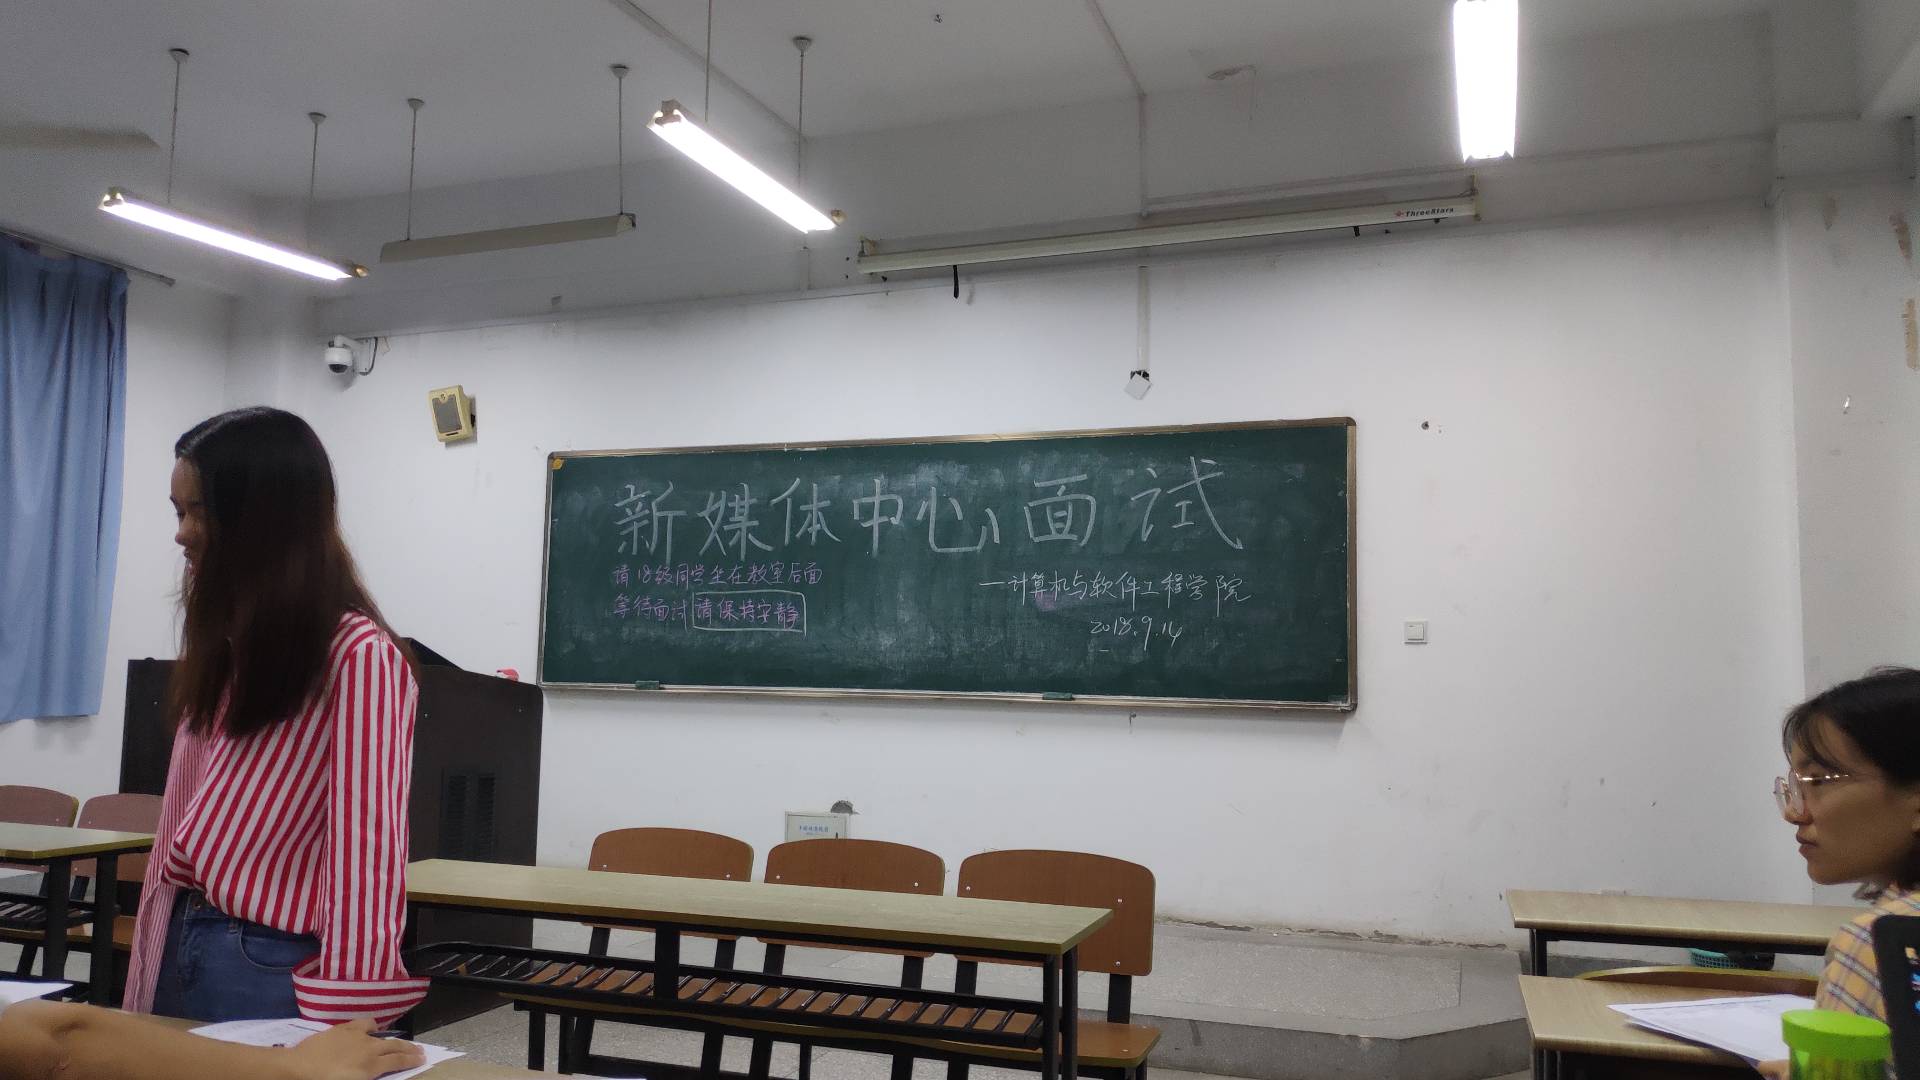 ThreeStars
新媒体中心面试
请18级同学坐在教室后面
等待面试 请保持安静
—计算机与软件工程学院
2018.9.14